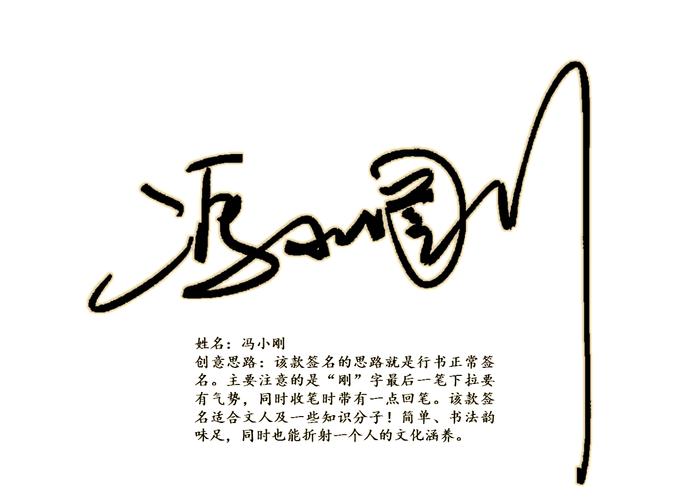 冯小刚
姓名：冯小刚
创意思路：该款签名的思路就是行书正常签
名。主要注意的是“刚”字最后一笔下拉要
有气势，同时收笔时带有一点回笔。该款签
名适合文人及一些知识分子！简单、书法韵
味足，同时也能折射一个人的文化涵养。